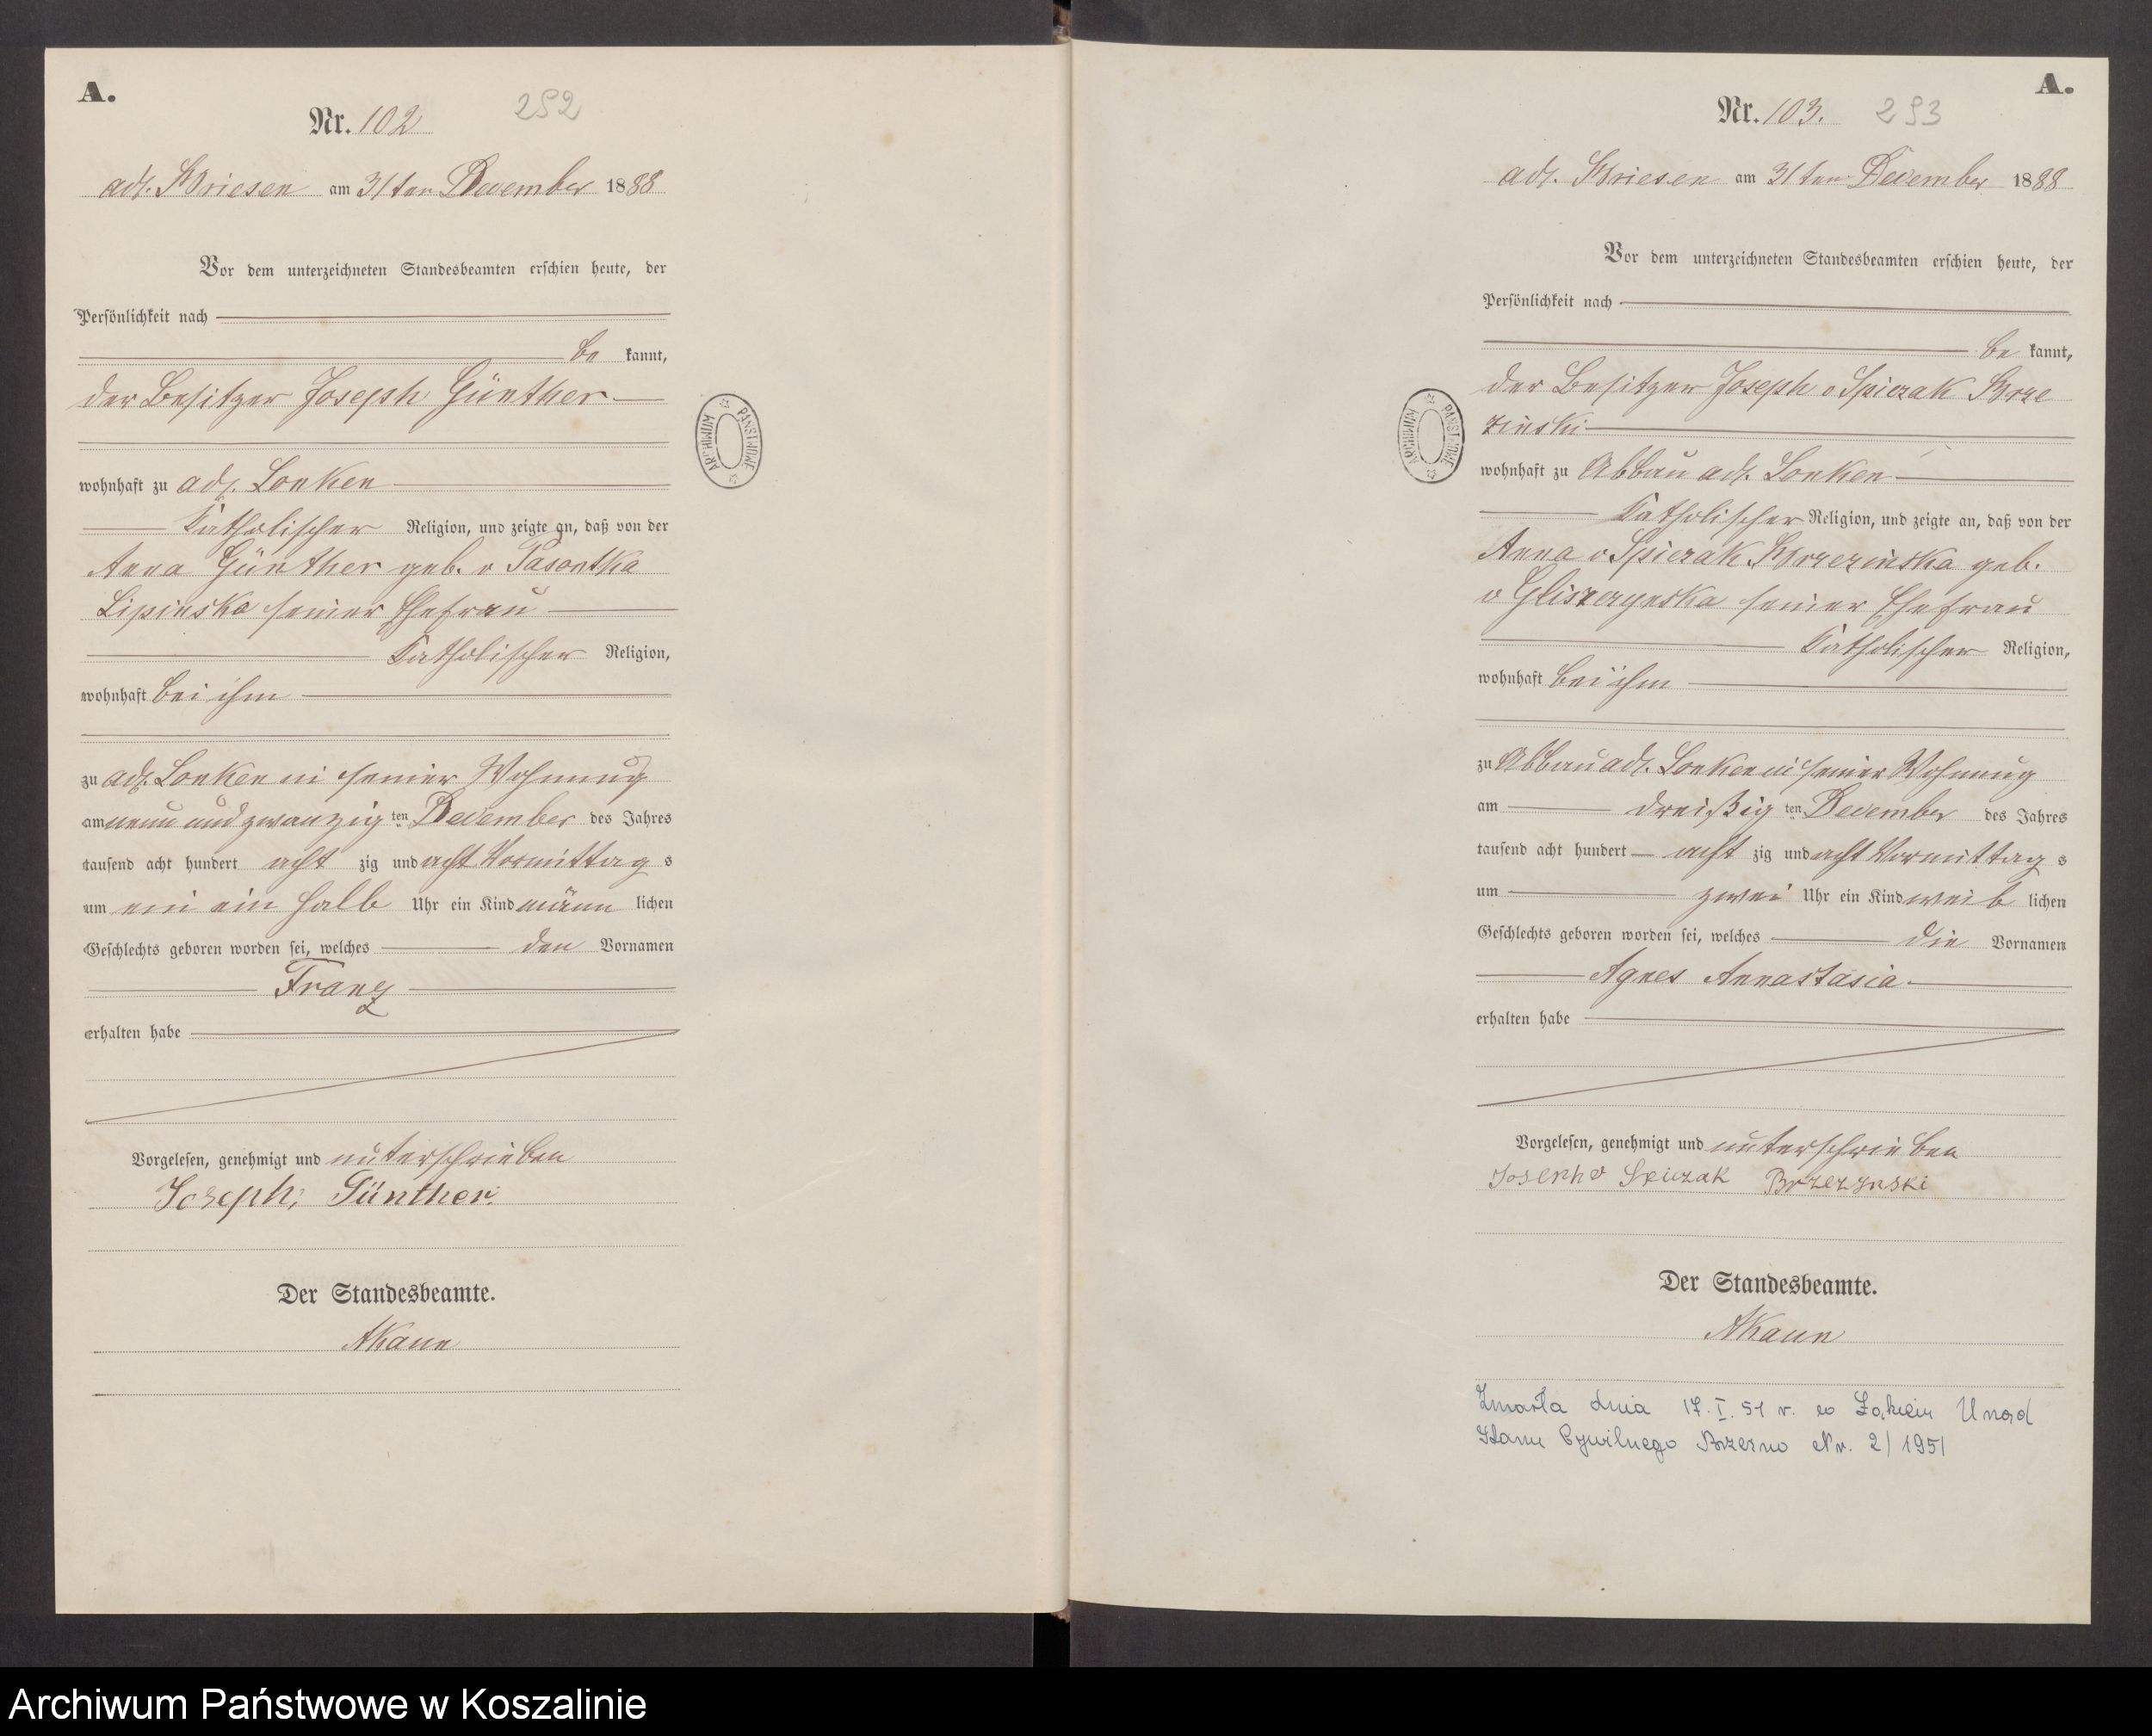 A.
Nr. 102
252
adl. Briesen am 31ten December 1888
Vor dem unterzeichneten Standesbeamten erschien heute, der
Persönlichkeit nach
be kannt,
der Besitzer Joseph Günther
wohnhaft zu adl. Lonken
Katholischer Religion, und zeigte an, daß von der
Anna Günther geb. v
Lipinska seiner Ehefrau
Katholischer Religion,
wohnhaft bei ihm
zu adl. Lonken in seiner Wohnung
am neun und zwanzig ten December des Jahres
tausend acht hundert acht zig und acht Vormittag s
um ein ein halb Uhr ein Kind männ lichen
Geschlechts geboren worden sei, welches den Vornamen
Franz
erhalten habe
Vorgelesen, genehmigt und unterschrieben
Joseph Günther
Der Standesbeamte.
ARCHIWUM PAŃSTWOWE
A.
Nr. 103.
253
adl. Briesen am 31ten December 1888
Vor dem unterzeichneten Standesbeamten erschien heute, der
Persönlichkeit nach
be kannt,
der Besitzer Joseph v Spiczak Brze
zinski
wohnhaft zu Abbau adl. Lonken
Katholischer Religion, und zeigte an, daß von der
Anna v Spiczak Brzezinska geb.
v Gliszczynska seiner Ehefrau
Katholischer Religion,
wohnhaft bei ihm
zu Abbau adl. Lonken in seiner Wohnung
am dreißig ten December des Jahres
tausend acht hundert acht zig und acht Vormittag s
um zwei Uhr ein Kind weib lichen
Geschlechts geboren worden sei, welches die Vornamen
Agnes Annastasia
erhalten habe
Vorgelesen, genehmigt und unterschrieben
Joseph v Spiczak Brzezynski
Der Standesbeamte.
ARCHIWUM PAŃSTWOWE
Zmarła dnia 17.I.51 r. w Łąkiem Urząd
Stanu Cywilnego Brzeźno Nr. 2/1951
Archiwum Państwowe w Koszalinie